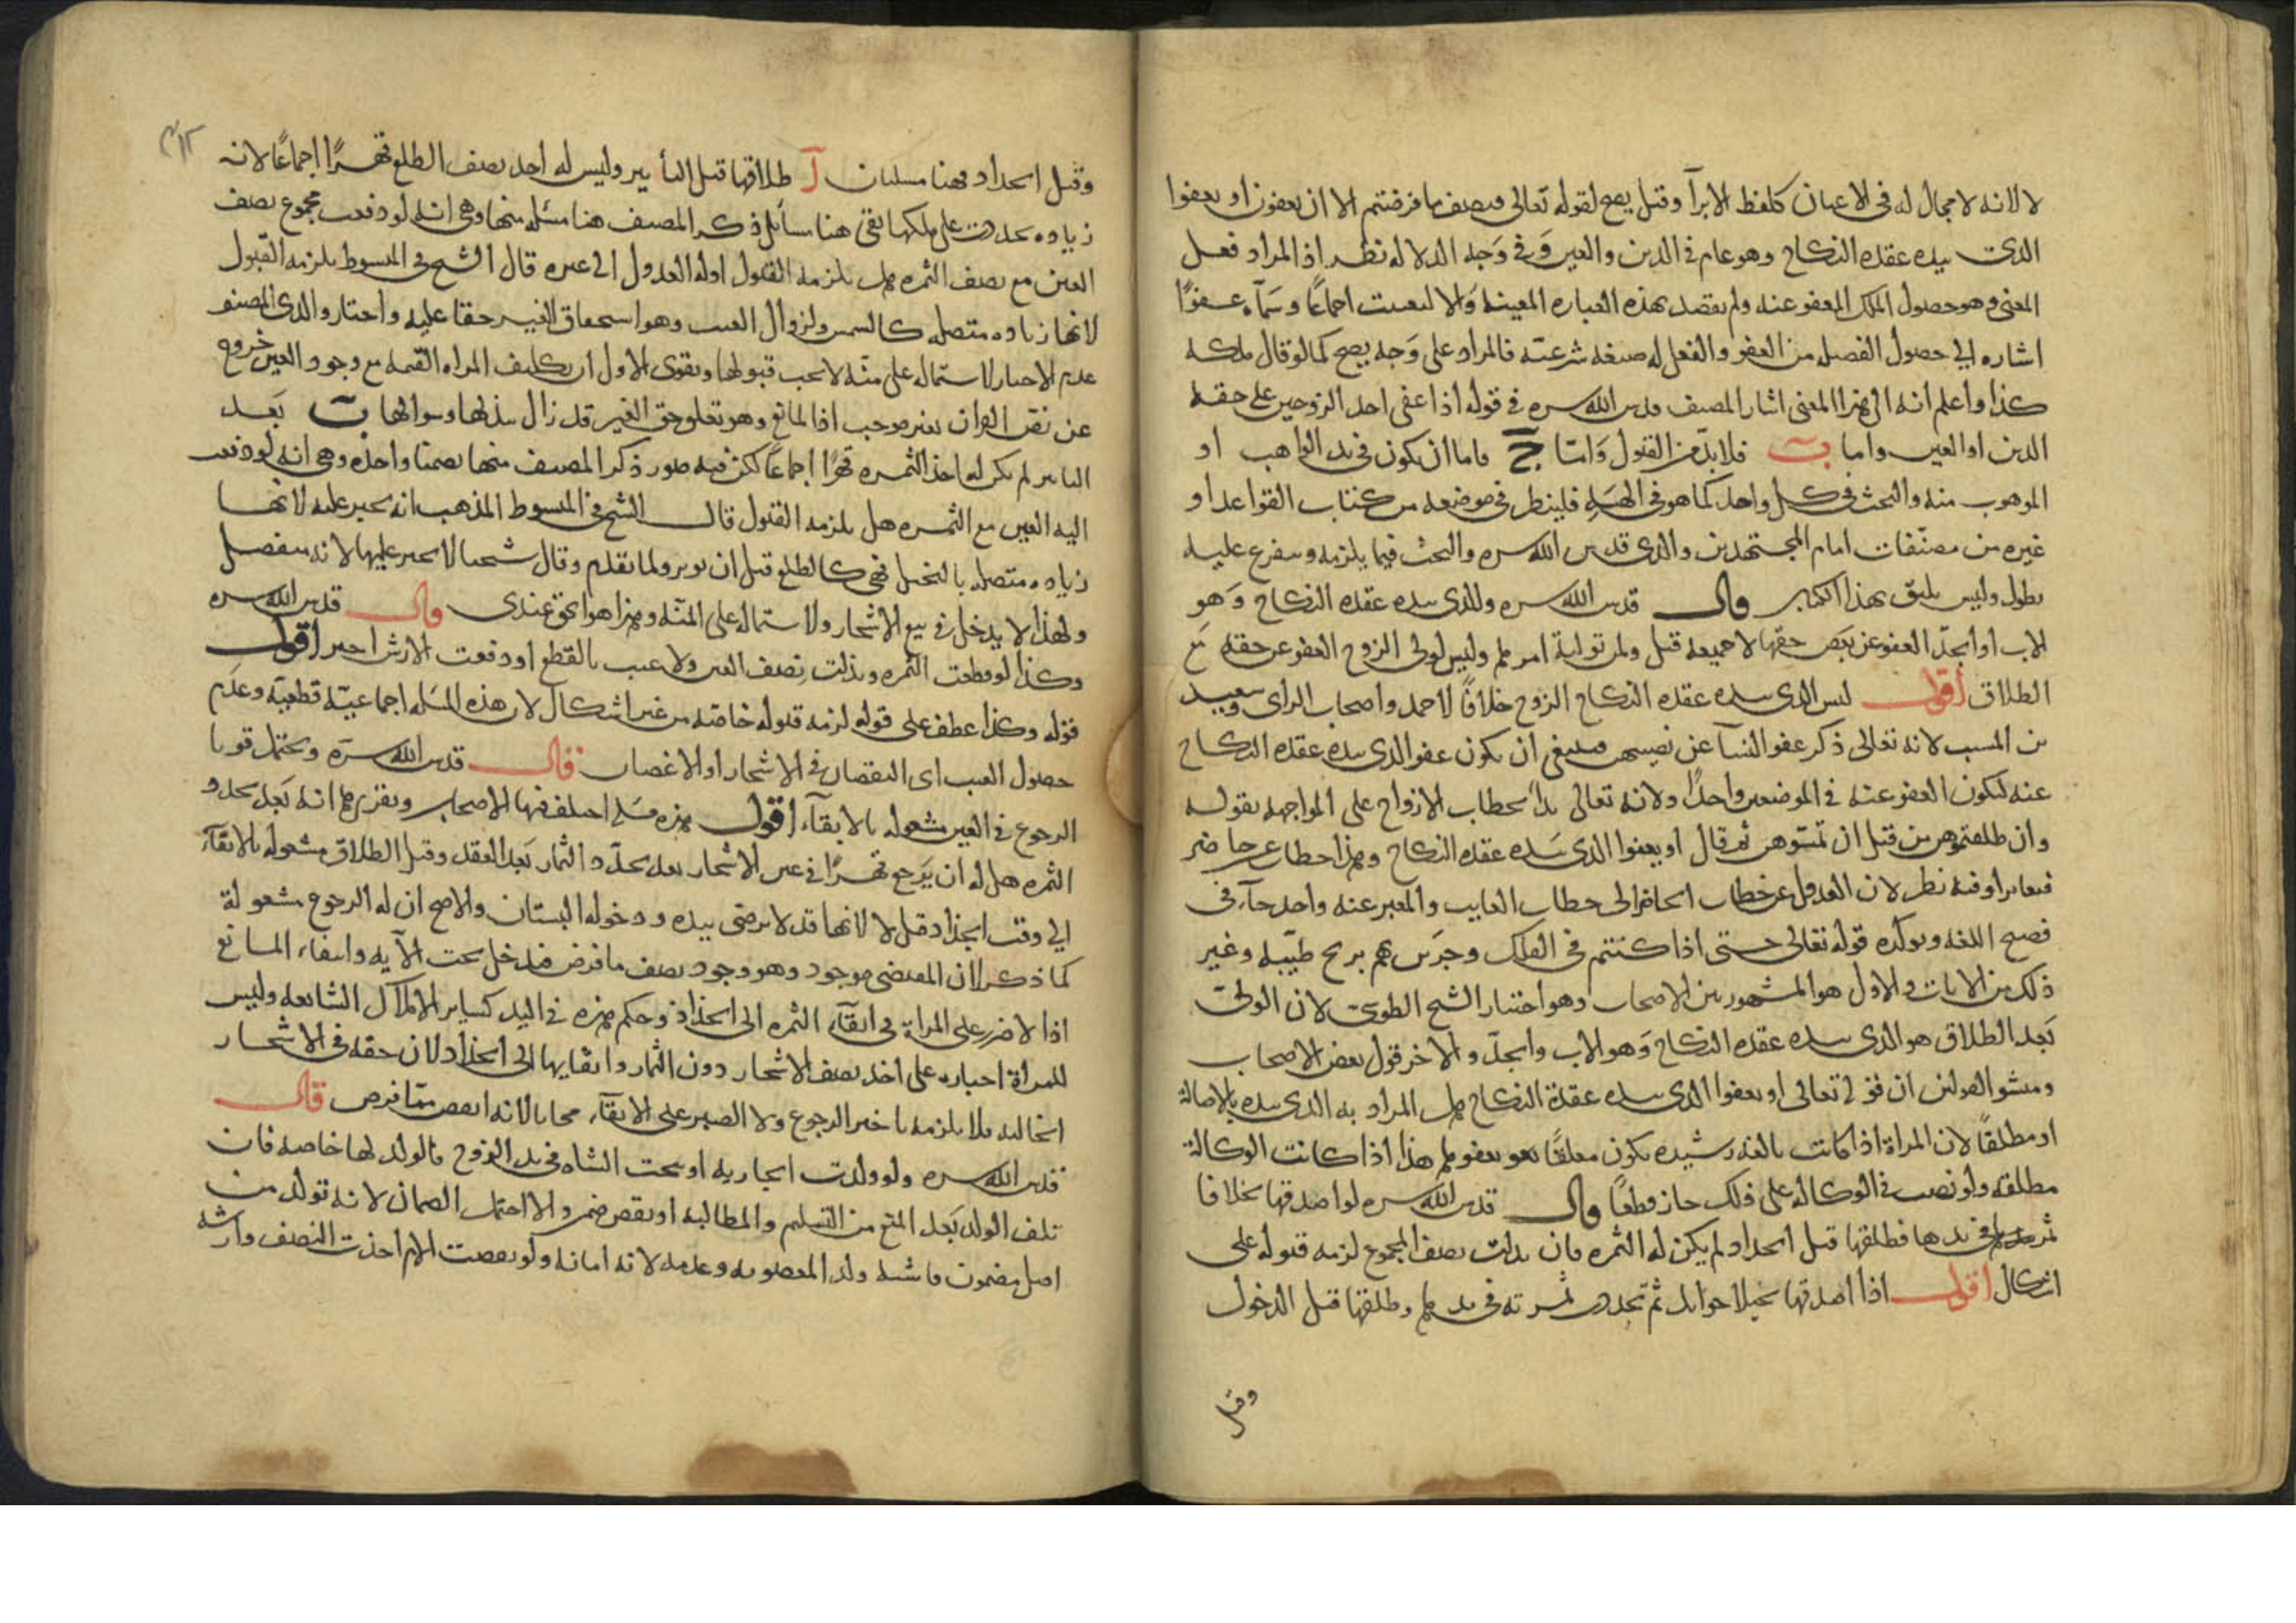 لا لانه لا مجال له فى الاعيان كلفظ الابرآ وقيل يصح لقوله تعالى فنصف ما فرضتم الا ان يعفون او يعفوا
الذى بيده عقده النكاح وهو عام فى الدين والعين وَفى وَجه الدلاله نظر اذ المراد فعل
المعنى وهو حصول الملك المعفو عنه ولم يقصد بهذه العباره المعينه وَالا لتعينت اجماعًا وسمآه عفوًا
اشاره الى حصول الفصيله من العفو والفعل له صيغه شرعيّه فالمراد على وَجه يصح كما لو قال ملكه
كذا واعلم انه الى هذا المعنى اشار المصنف قدس الله سره فى قوله اذا عفى احد الزوجين على حقه
الدين او العين واما ب فلا بدّ من القبول وَامّا ج فاما ان يكون فى يد الواهب او
الموهوب منه والبحث فى كل واحد كما هو فى الهبَه فلينظر فى موضعه من كتاب القواعد او
غيره من مصنّفات امام المجتهدين والدى قدس الله سره والبحث فيما يلزمه ويتفرع عليه
يطول وليس يليق بهذا الكتاب قال قدس الله سره وللذى بيده عقده النكاح وَهو
الاب او الجدّ العفو عن بعض حقها لا جميعه قيل ولمن توليه امرها وليس لولى الزوج العفو عن حقه مَع
الطلاق اقول ليس الذى بيده عقده النكاح الزوج خلافًا لاحمد واصحاب الراى وسعيد
بن المسيب لانه تعالى ذكر عفو النسآ عن نصيبهن فينبغى ان يكون عفو الذى بيده عقده النكاح
عنه ليكون العفو عنه فى الموضعين واحدًا ولانه تعالى بدأ بخطاب الازواج على المواجهه بقوله
وان طلقتموهن من قبل ان تمسّوهن ثم قال او يعفوا الذى بيَده عقده النكاح وهذا خطاب غير حاضر
فتغايرا وفيه نظر لان العدول عن خطاب الحاضر الى خطاب الغايب والمعبر عنه واحد جآء فى
فصيح اللغه ويوكّده قوله تعالى حتى اذا كنتم فى الفلك وجرَين بهم بريح طيّبه وغير
ذلك من الايات والاول هو المشهور بين الاصحاب وهو اختيار الشيخ الطوسى لان الولىّ
بَعد الطلاق هو الذى بيده عقده النكاح وَهو الاب والجدّ والاخر قول بعض الاصحاب
ومنشو القولين ان قوله تعالى او يعفوا الذى بيده عقدة النكاح هل المراد به الذى بيده بالاصالة
او مطلقًا لان المراة اذا كانت بالغه رشيده يكون معلقًا بعفوها هذا اذا كانت الوكالة
مطلقه ولو نصت فى الوكاله على ذلك جاز قطعًا قال قدس الله سره لو اصدقها نخلا فا
ثمر فى يدها فطلقها قبل الجداد لم يكن له الثمره فان بذلت نصف المجموع لزمه قبوله على
اشكال اقول اذا اصدقها نخيلا حوايل ثم تجددت ثمرته فى يدها وطلقها قبل الدخول
وقبل
وقبل الجداد فهنا مسلتان آ طلاقها قبل التأبير وليس له اخذ نصف الطلع قهرًا اجماعًا لانه
زياده تجددت على ملكها بقى هنا مسائل ذكر المصنف هنا مسئله منها وهى انه لو دفعت مجموع نصف
العين مع نصف الثمره هل يلزمه القبول او له العدول الى غيره قال الشيخ فى المبسوط يلزمه القبول
لانها زياده متصله كالسمن ولزوال العيب وهو استحقاق الغير حقا عليه واختار والدى المصنف
عدم الاجبار لاشتماله على منّه لا يجب قبولها ويقوى الاول ان تكليف المراه القيمه مع وجود العين خروج
عن نص القران بغير موجب اذ المانع وهو تعلق حق الغير قد زال ببذلها وسوالها ب بَعد
التابير لم يكن له اخذ الثمره قهرًا اجماعًا لكن فيه صور ذكر المصنف منها بصمتا واحده وهى انه لو دفعت
اليه العين مع الثمره هل يلزمه القبول قال الشيخ فى المبسوط المذهب انه يجبر عليه لانها
زياده متصله بالنخيل فهى كالطلع قبل ان يوبر ولما تقدم وقال شيخنا لا يجبر عليها لانه ينفصل
ولهذا لا يدخل فى بيع الاشجار ولاشتماله على المنّه وهذا هو الحق عندى قال قدس الله سره
وكذا لو قطعت الثمره وبذلت نصف العين ولا عيب بالقطع او دفعت الارش اجبر اقول
قوله وكذا عطف على قوله لزمه قبوله خاصّه من غير اشكال لان هذه المسَله اجماعيّه قطعيّه وعدَم
حصول العيب اى النقصان فى الاشجار او الاغصان قال قدس الله سرّه ويحتمل قويا
الرجوع فى العين مشغوله بالابقآء اقول هذه مسَله اختلف فيها الاصحاب وتقريرها انه بَعد تجدد
الثمره هل له ان يَرجع قهرًا فى عين الاشجار بعد تجدّد الثمار بَعد العقد وقبل الطلاق مشغوله بالابقآء
الى وقت الجذاذ قيل لا لانها قد لا ترضى بيده ودخوله البستان والاصح ان له الرجوع مشغولة
كما ذكر لان المقتضى موجود وهو وجود نصف ما فرض فيدخل تحت الآيه وانتفاء المانع
اذ لا ضرر على المراة فى ابقآء الثمره الى الجذاذ وحكم هذه فى اليد كساير الاملاك الشائعه وليس
للمرأة اجباره على اخذ نصف الاشجار دون الثمار وابقايها الى الجذاذ لان حقه فى الاشجار
الخاليه فلا يلزمه تاخير الرجوع ولا الصبر على الابقآء مجانا لانه انقص ممّا فرض قال
قدس الله سره ولو ولدت الجاريه او نتجت الشاه فى يد الزوج فالولد لها خاصه فان
تلف الولد بَعد المنع من التسليم والمطالبه او نقص ضمن والا احتمل الضمان لانه تولد من
اصل مضمون فاشبه ولد المغصوبه وعدمه لانه امانه ولو نقصت الام اخذت النصف وارشه